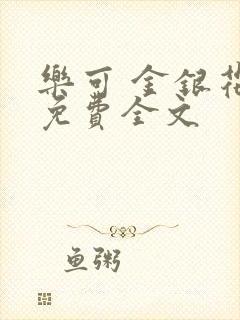 樂可 金銀花
免費全文
鱼粥